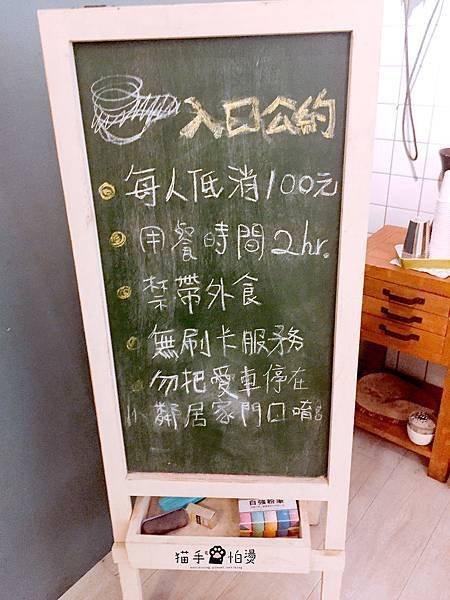 入口公約
每人低消100元
用餐時間2hr.
禁帶外食
無刷卡服務
勿把愛車停在
鄰居家門口唷
自強粉筆
猫手 怕燙